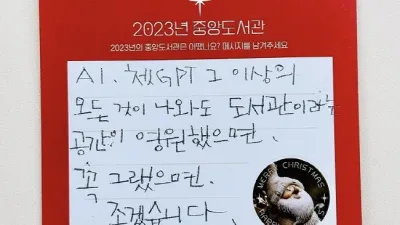 2023년 중앙도서관
2023년의 중앙도서관은 어땠나요? 메시지를 남겨주세요
AI. 챗GPT 그 이상의
모든 것이 나와도 도서관이라는
공간이 영원했으면.
꼭 그랬으면.
조겠습니다.
MERRY CHRISTMAS